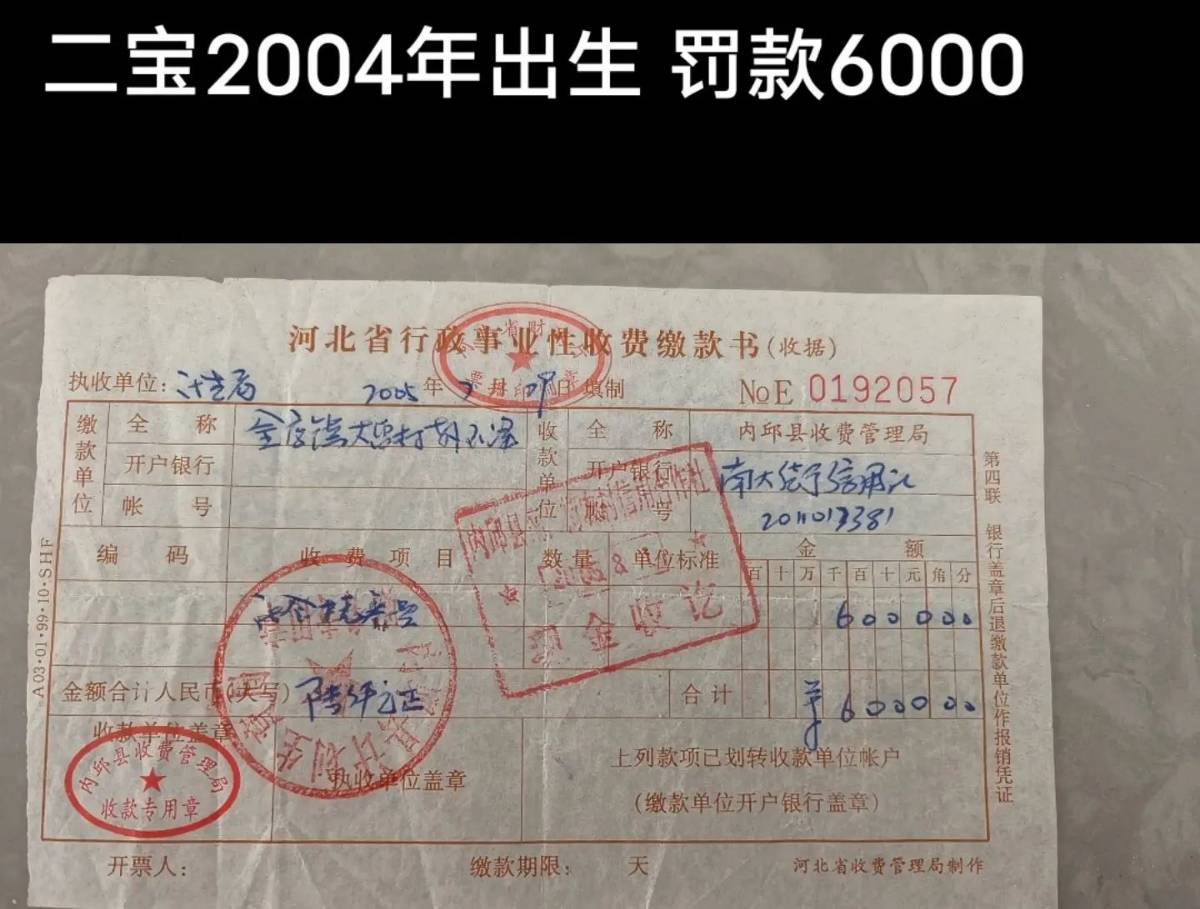 二宝2004年出生 罚款6000
河北省行政事业性收费缴款书(收据)
执收单位: 计生局 2005年 7月 29日 填制 №E 0192057
缴款单位
全称
开户银行
帐号
收款单位
全称 内邱县收费管理局
开户银行 信用社
帐号
编码 收费项目 数量 单位标准 金额
百十万千百十元角分
社会抚养费
600000
金额合计人民币(大写) 陆仟元正 合计 ¥600000
收款单位盖章
执收单位盖章
上列款项已划转收款单位帐户
(缴款单位开户银行盖章)
内邱县收费管理局
收款专用章
现金收讫
开票人: 缴款期限: 天 河北省收费管理局制作
第四联 银行盖章后退缴款单位作报销凭证
A03·01·99·10·SHF